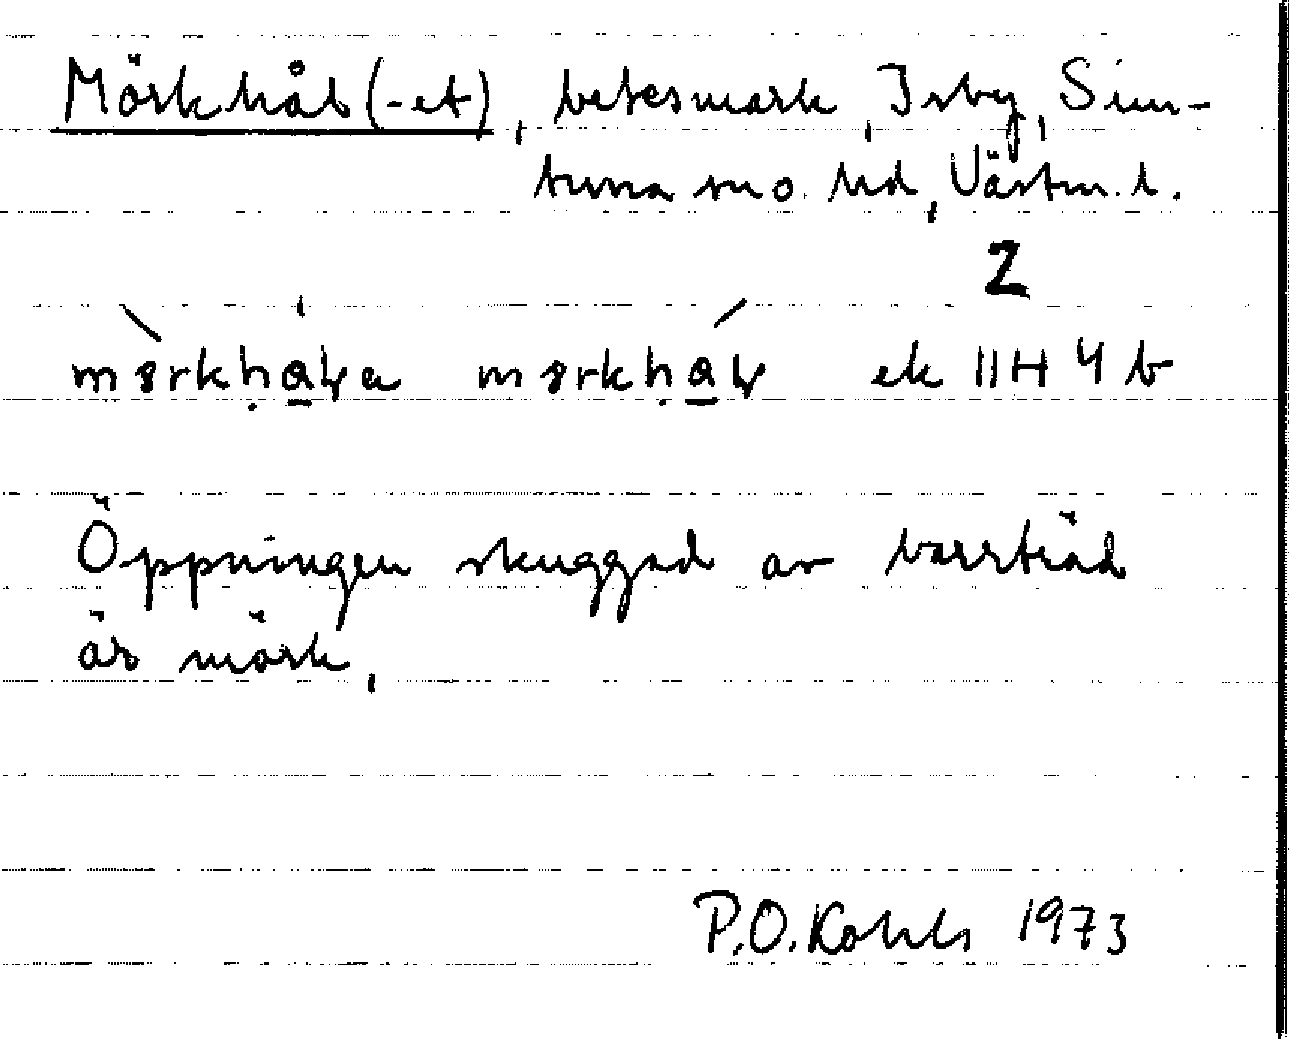 Mörkhål (-et), betesmark, Isby, Sim-
tuna sn o. hd, Västm. l.
2
mörkhåla mörkhål ek 11H 4 b
Öppningen skuggad av barrträd
är mörk,
P.O. Kohls 1973